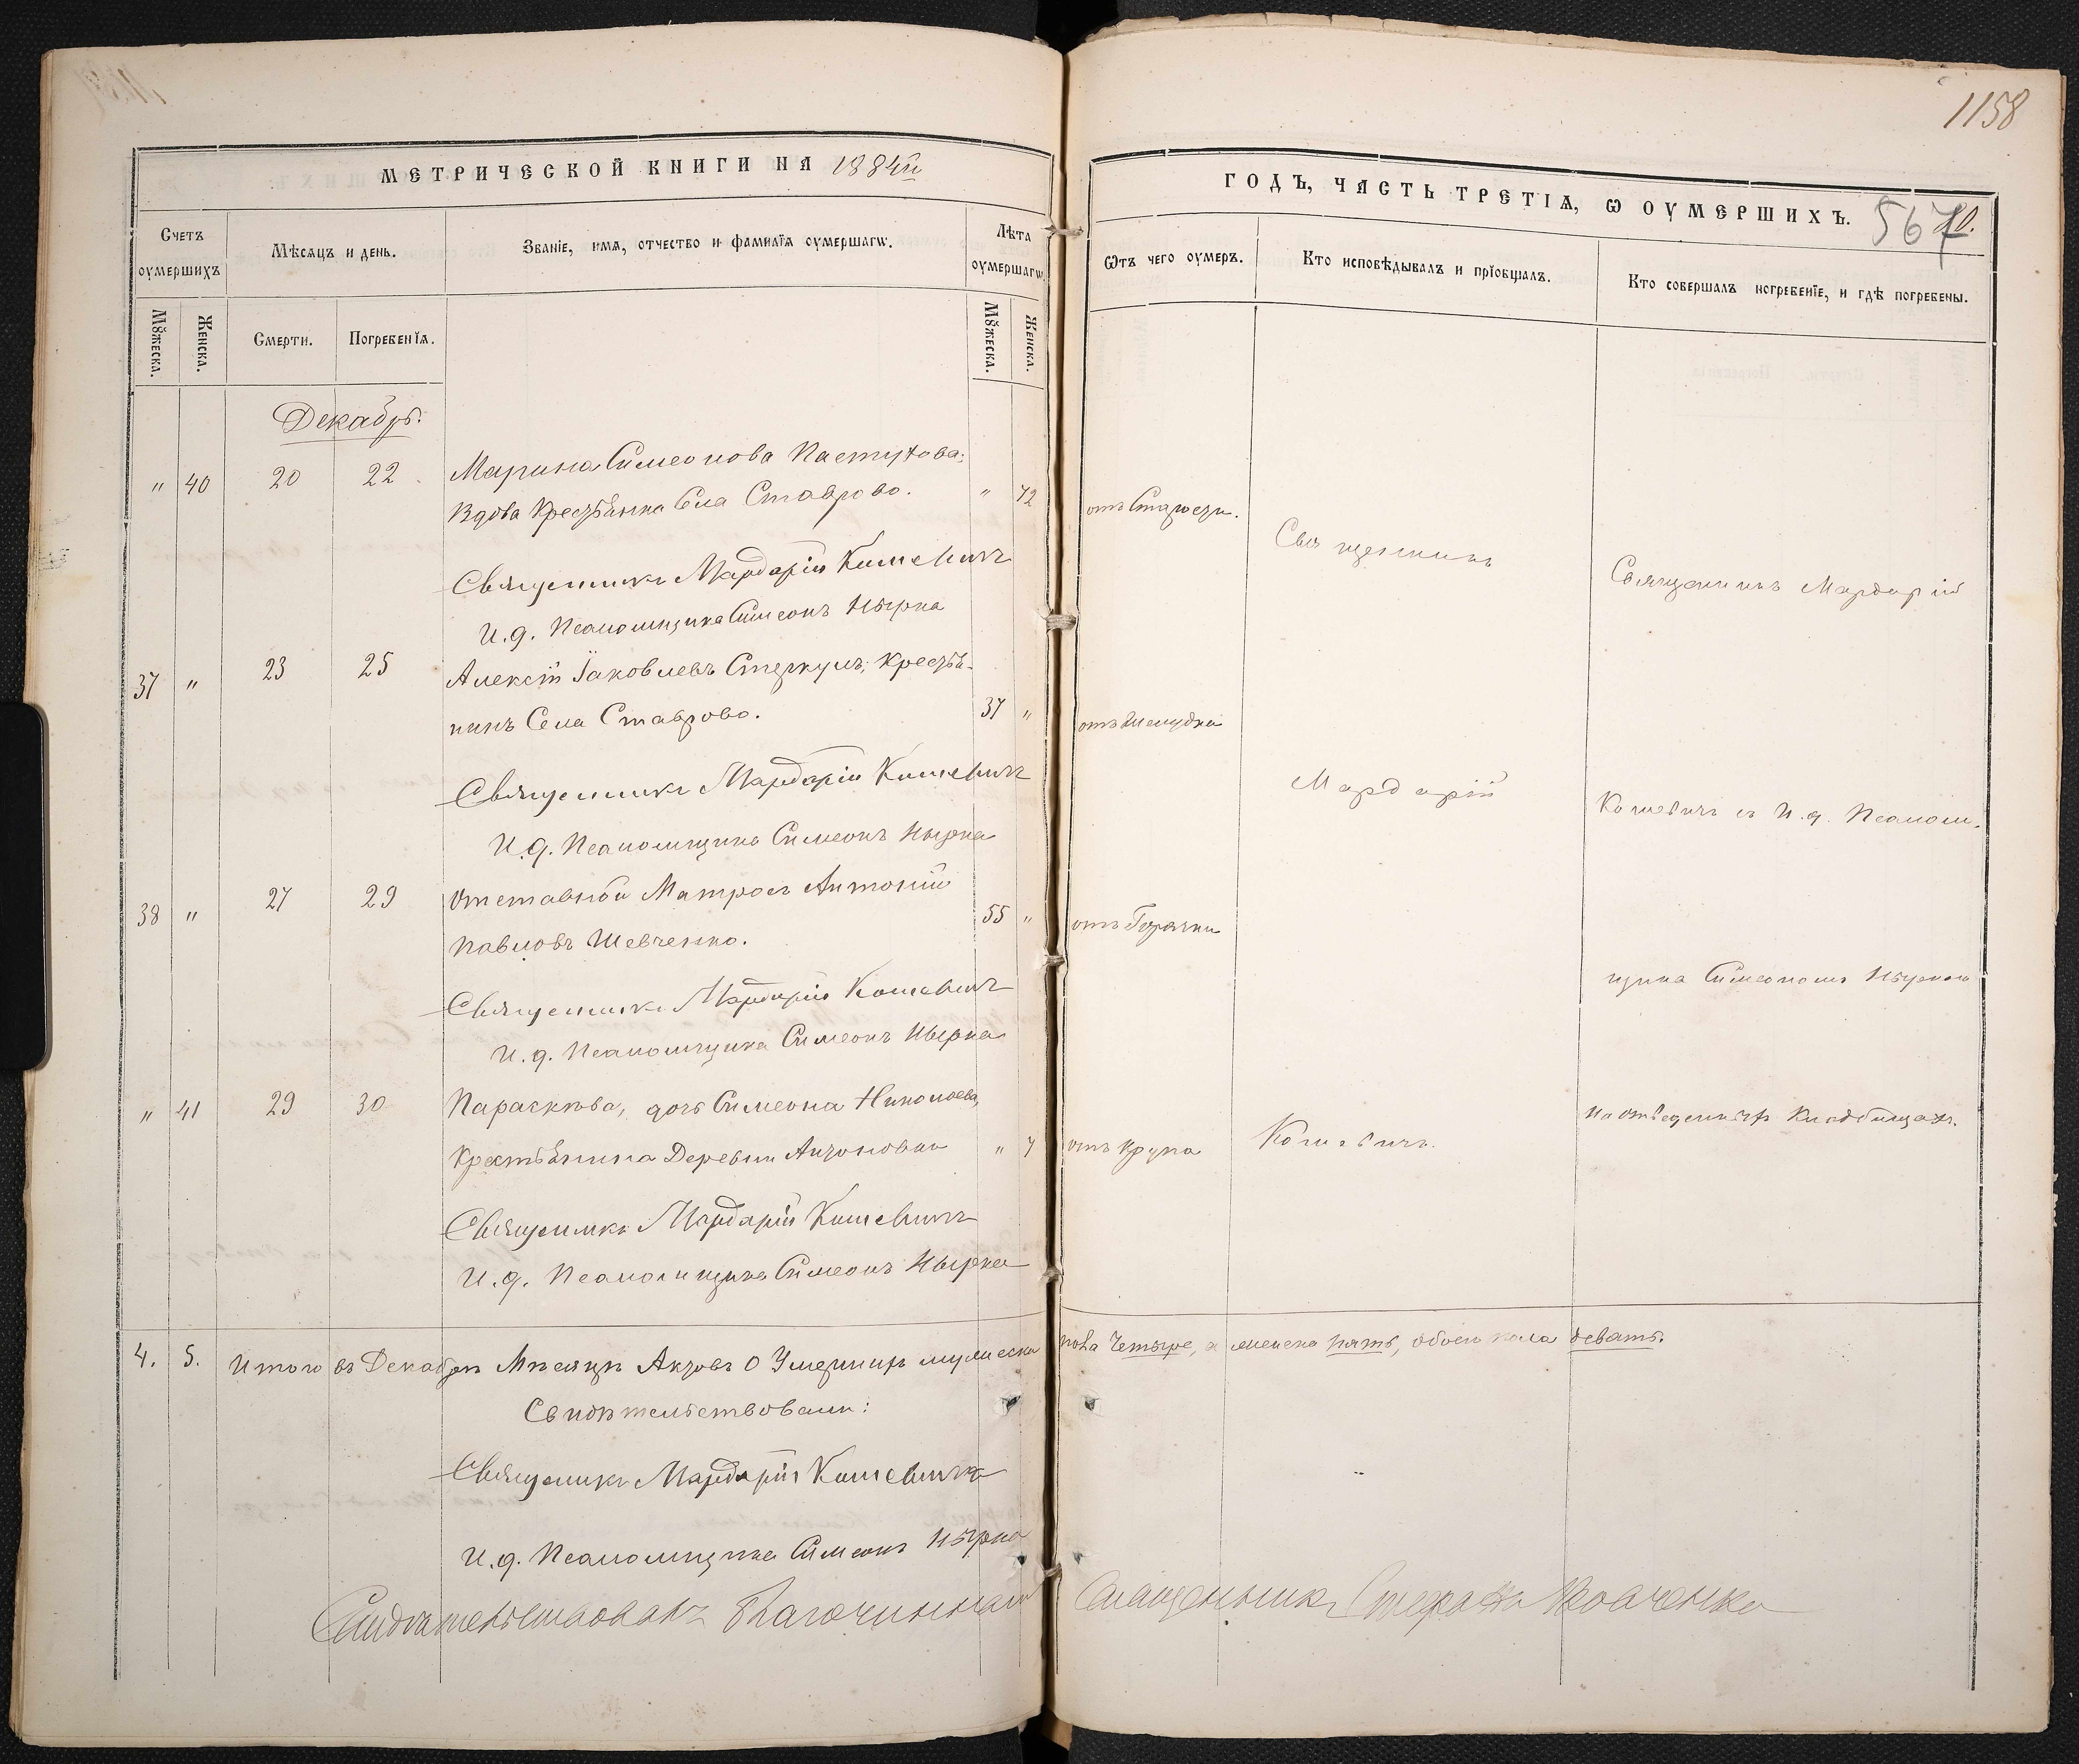 1158
МЕТРИЧЕСКОЙ КНИГИ НА 1884й
ГОДЪ, ЧАСТЬ ТРЕТІѦ, Ѡ ОУМЕРШИХЪ.
567
Счетъ оумершихъ
Мѣсяцъ и день.
Званіе, имѧ, отчество и фамилїѧ оумершагѡ.
Лѣта оумершагѡ
Ѿтъ чего оумеръ.
Кто исповѣдывалъ и прїобщалъ.
Кто совершалъ погребенїе, и гдѣ погребены.
Мꙋжеска.
Женска.
Смерти.
Погребенїѧ.
Мꙋжеска.
Женска.
Декабрь.
" 40 20 22 Марина Симеонова Пастухова;
Вдова Крестьянка Села Ставрово. " 72 отъ Старости.
Священникъ Мардарій Кошевичъ
И.д. Псаломщика Симеонъ Нырка
37 " 23 25 Алексій Іаковлевъ Стеркулъ; Крестья-
нинъ Села Ставрово. 37 " отъ Желудка
Священникъ Мардарій Кошевичъ
И.д. Псаломщика Симеонъ Нырка
38 " 27 29 Отставной Матросъ Антоній
Павловъ Шевченко. 55 " отъ Горячки
Священникъ Мардарій Кошевичъ
И.д. Псаломщика Симеонъ Нырка
" 41 29 30 Параскева, дочь Симеона Николаева,
Крестьянина Деревни Антоновки " 7 отъ Крупа
Священникъ Мардарій Кошевичъ
И.д. Псаломщика Симеонъ Нырка
Священникъ
Мардарій
Кошевичъ.
Священникъ Мардарій
Кошевичъ съ И.д. Псалом-
щика Симеономъ Ныркою
на отведенныхъ Кладбищахъ.
4. 5. Итого въ Декабрѣ Мѣсяцѣ Актовъ о Умершихъ мужеска пола Четыре, а женска пять, обоего пола девять.
Свидѣтельствовали:
Священникъ Мардарій Кошевичъ
И.д. Псаломщика Симеонъ Нырка
Свидѣтельствовалъ Благочинный Священникъ